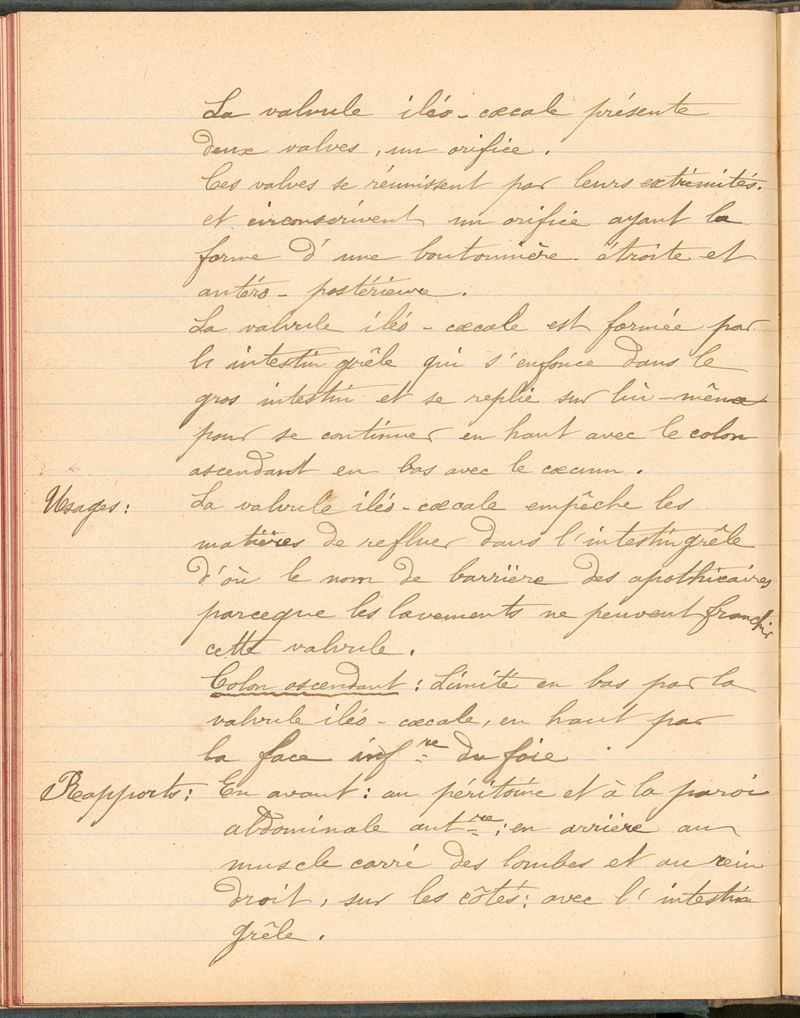 La valvule iléo-cœcale présente
deux valves, un orifice.
Ces valves se réunissent par leurs extrémités.
et circonscrivent un orifice ayant la
forme d'une boutonnière étroite et
antéro-postérieure.
La valvule iléo-cœcale est formée par
l'intestin grêle qui s'enfonce dans le
gros intestin et se replie sur lui-même
pour se continuer en haut avec le colon
ascendant en bas avec le cœcum.
Usages: La valvule iléo-cœcale empêche les
matières de refluer dans l'intestin grêle
d'où le nom de barrière des apothicaires
parceque les lavements ne peuvent franchir
cette valvule.
Colon ascendant: Limité en bas par la
valvule iléo-cœcale, en haut par
la face infre du foie.
Rapports: En avant: au péritoine et à la paroi
abdominale antre; en arrière au
muscle carré des lombes et au rein
droit, sur les côtés: avec l'intestin
grêle.